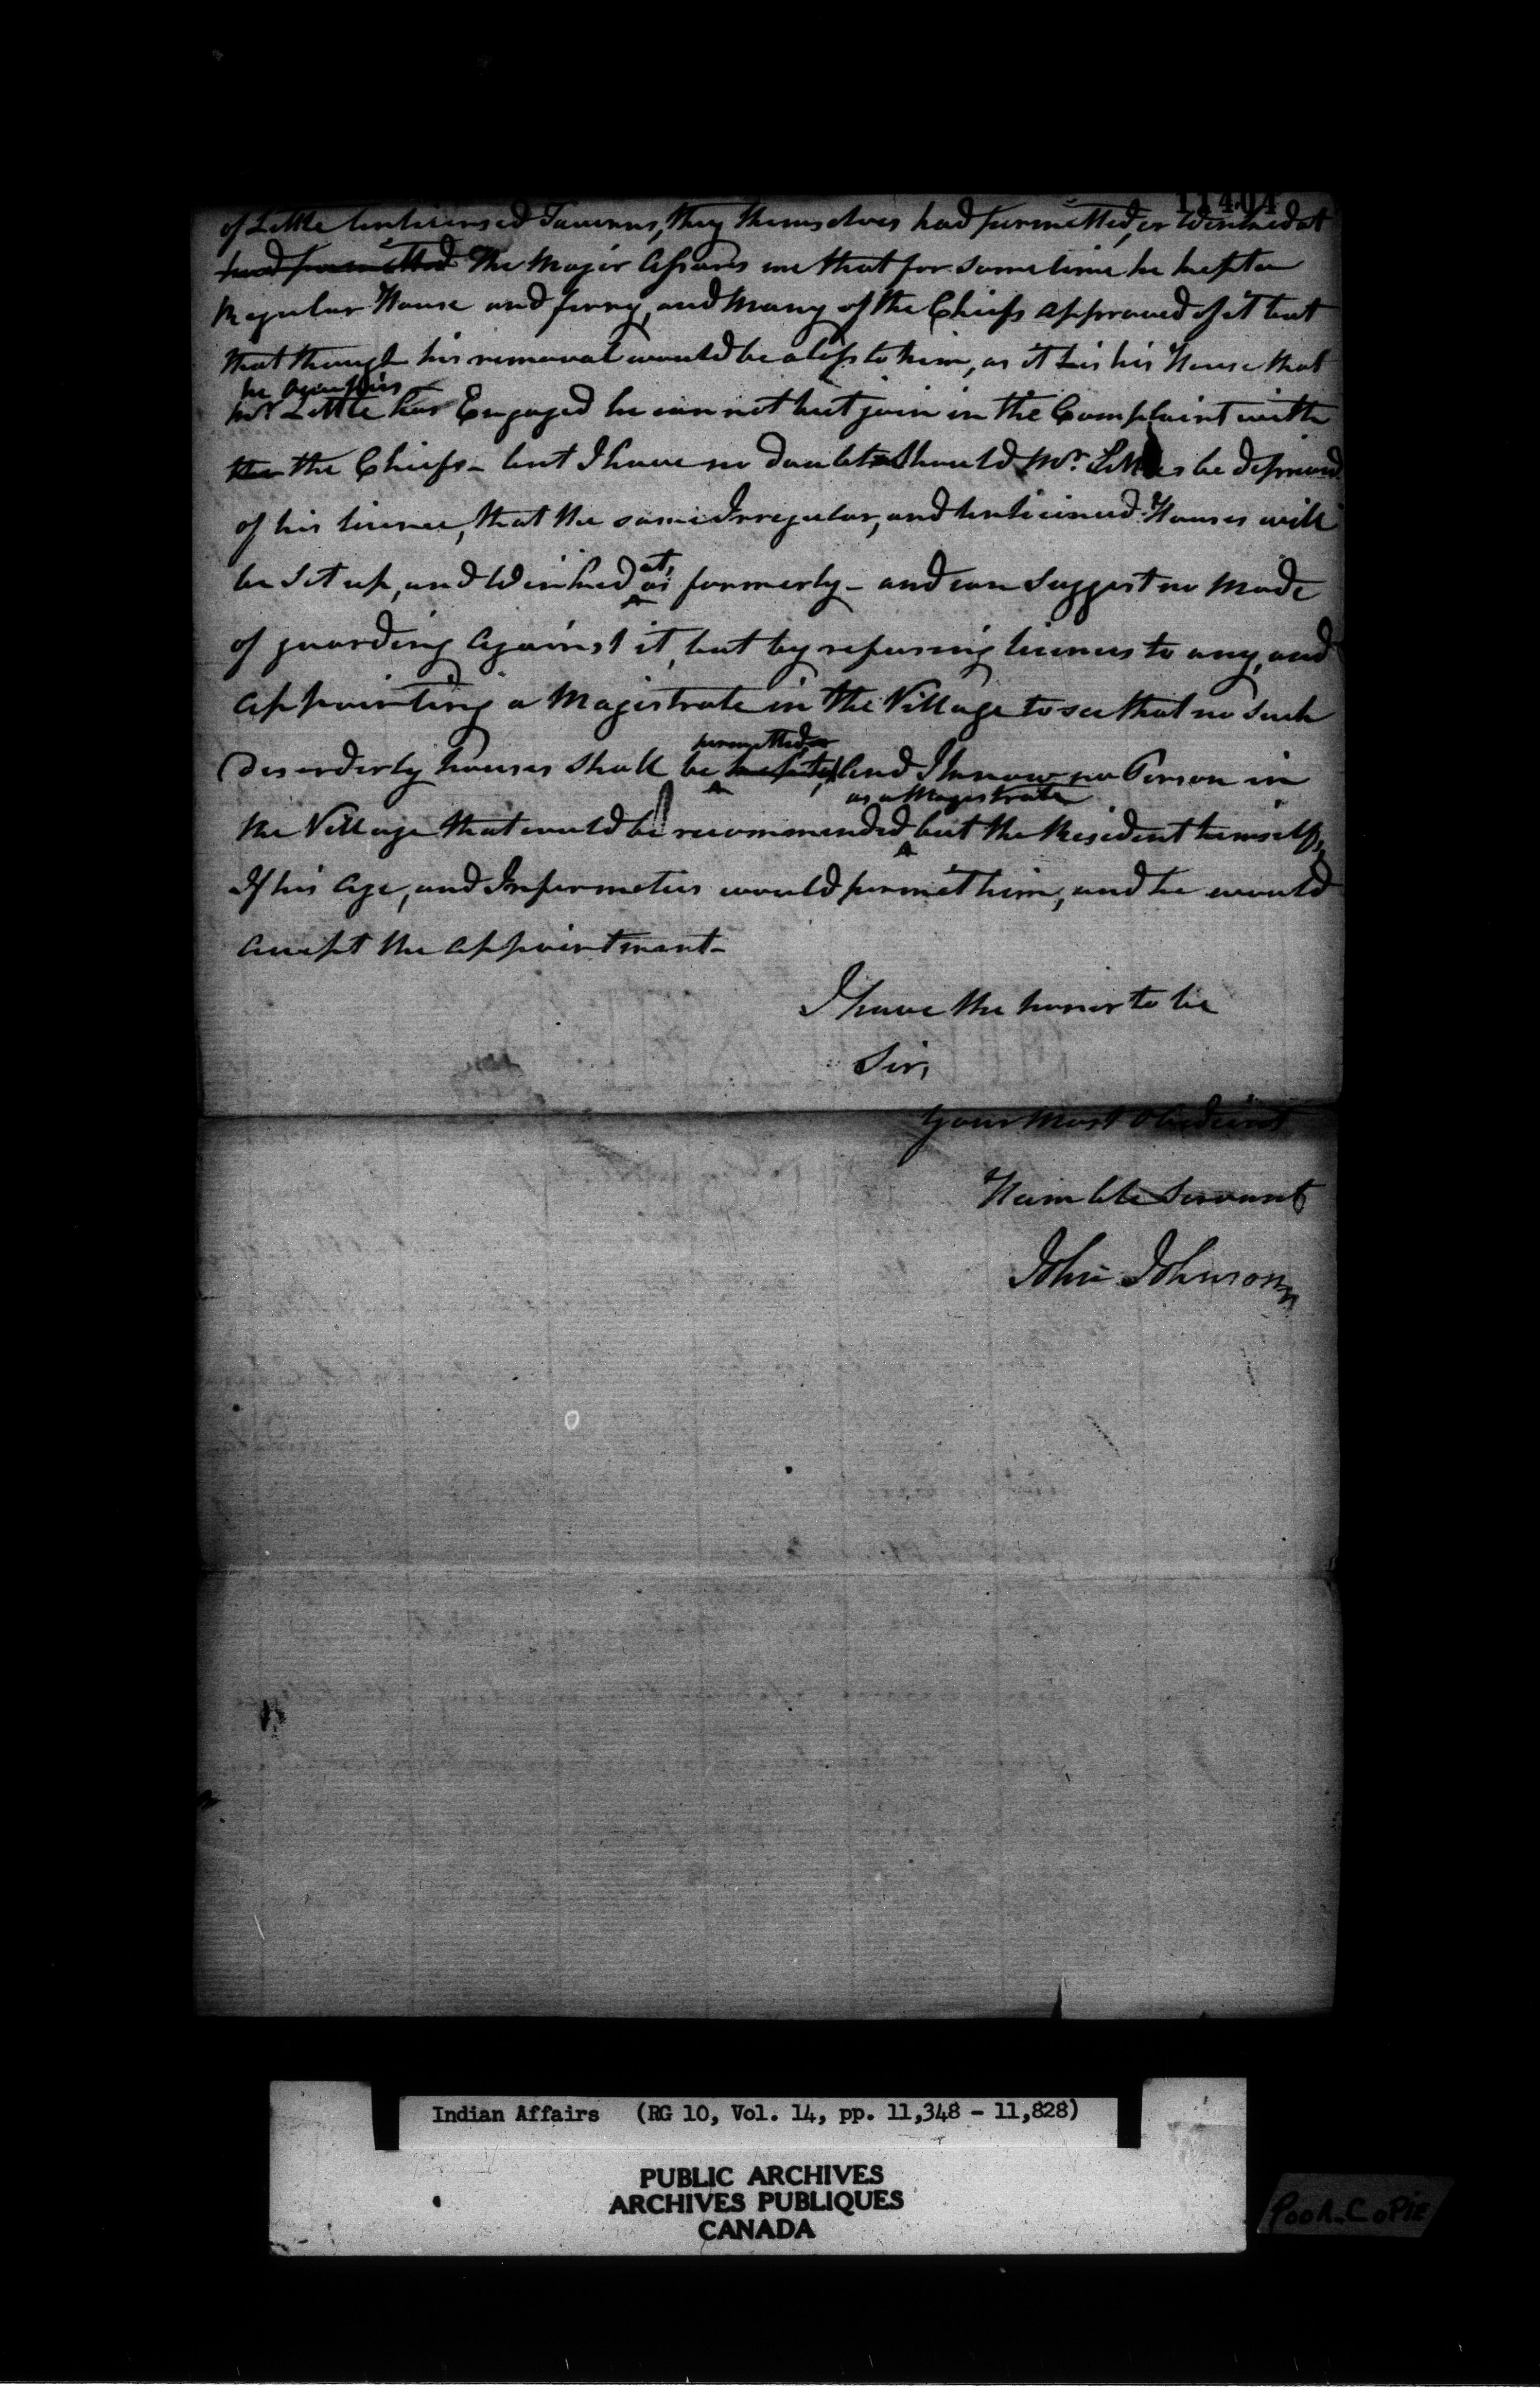 11404
of Little unlicensed Taverns, they themselves had permitted, or Winked at
had permitted The Major Assures me that for some time he kept a
Regular House and ferry, and Many of the Chiefs approved of it but
that though his removal would be a loss to him, as it is his House that
he occupies
Mr. Little has Engaged he can not but join in the Complaint with
the the Chiefs – but I have no doubt should Mr. Little be deprived
of his license, that the same Irregular, and unlicensed Houses will
at,
be set up, and Winked as formerly – and can suggest no Mode
of guarding Against it, but by refusing licenses to any, and
appointing a Magistrate in the Village to see that no such
permitted
Disorderly houses shall be kept, And I know no Person in
as a Magistrate
the Village that could be recommended but the Resident himself,
If his Age, and Infirmeties would permit him, and he would
accept the appointment –
I have the honor to be
Sir,
your Most Obedient
Humble Servant
John Johnson
Indian Affairs (RG 10, Vol. 14, pp. 11,348 - 11,828)
PUBLIC ARCHIVES
ARCHIVES PUBLIQUES
CANADA
POOR COPIE